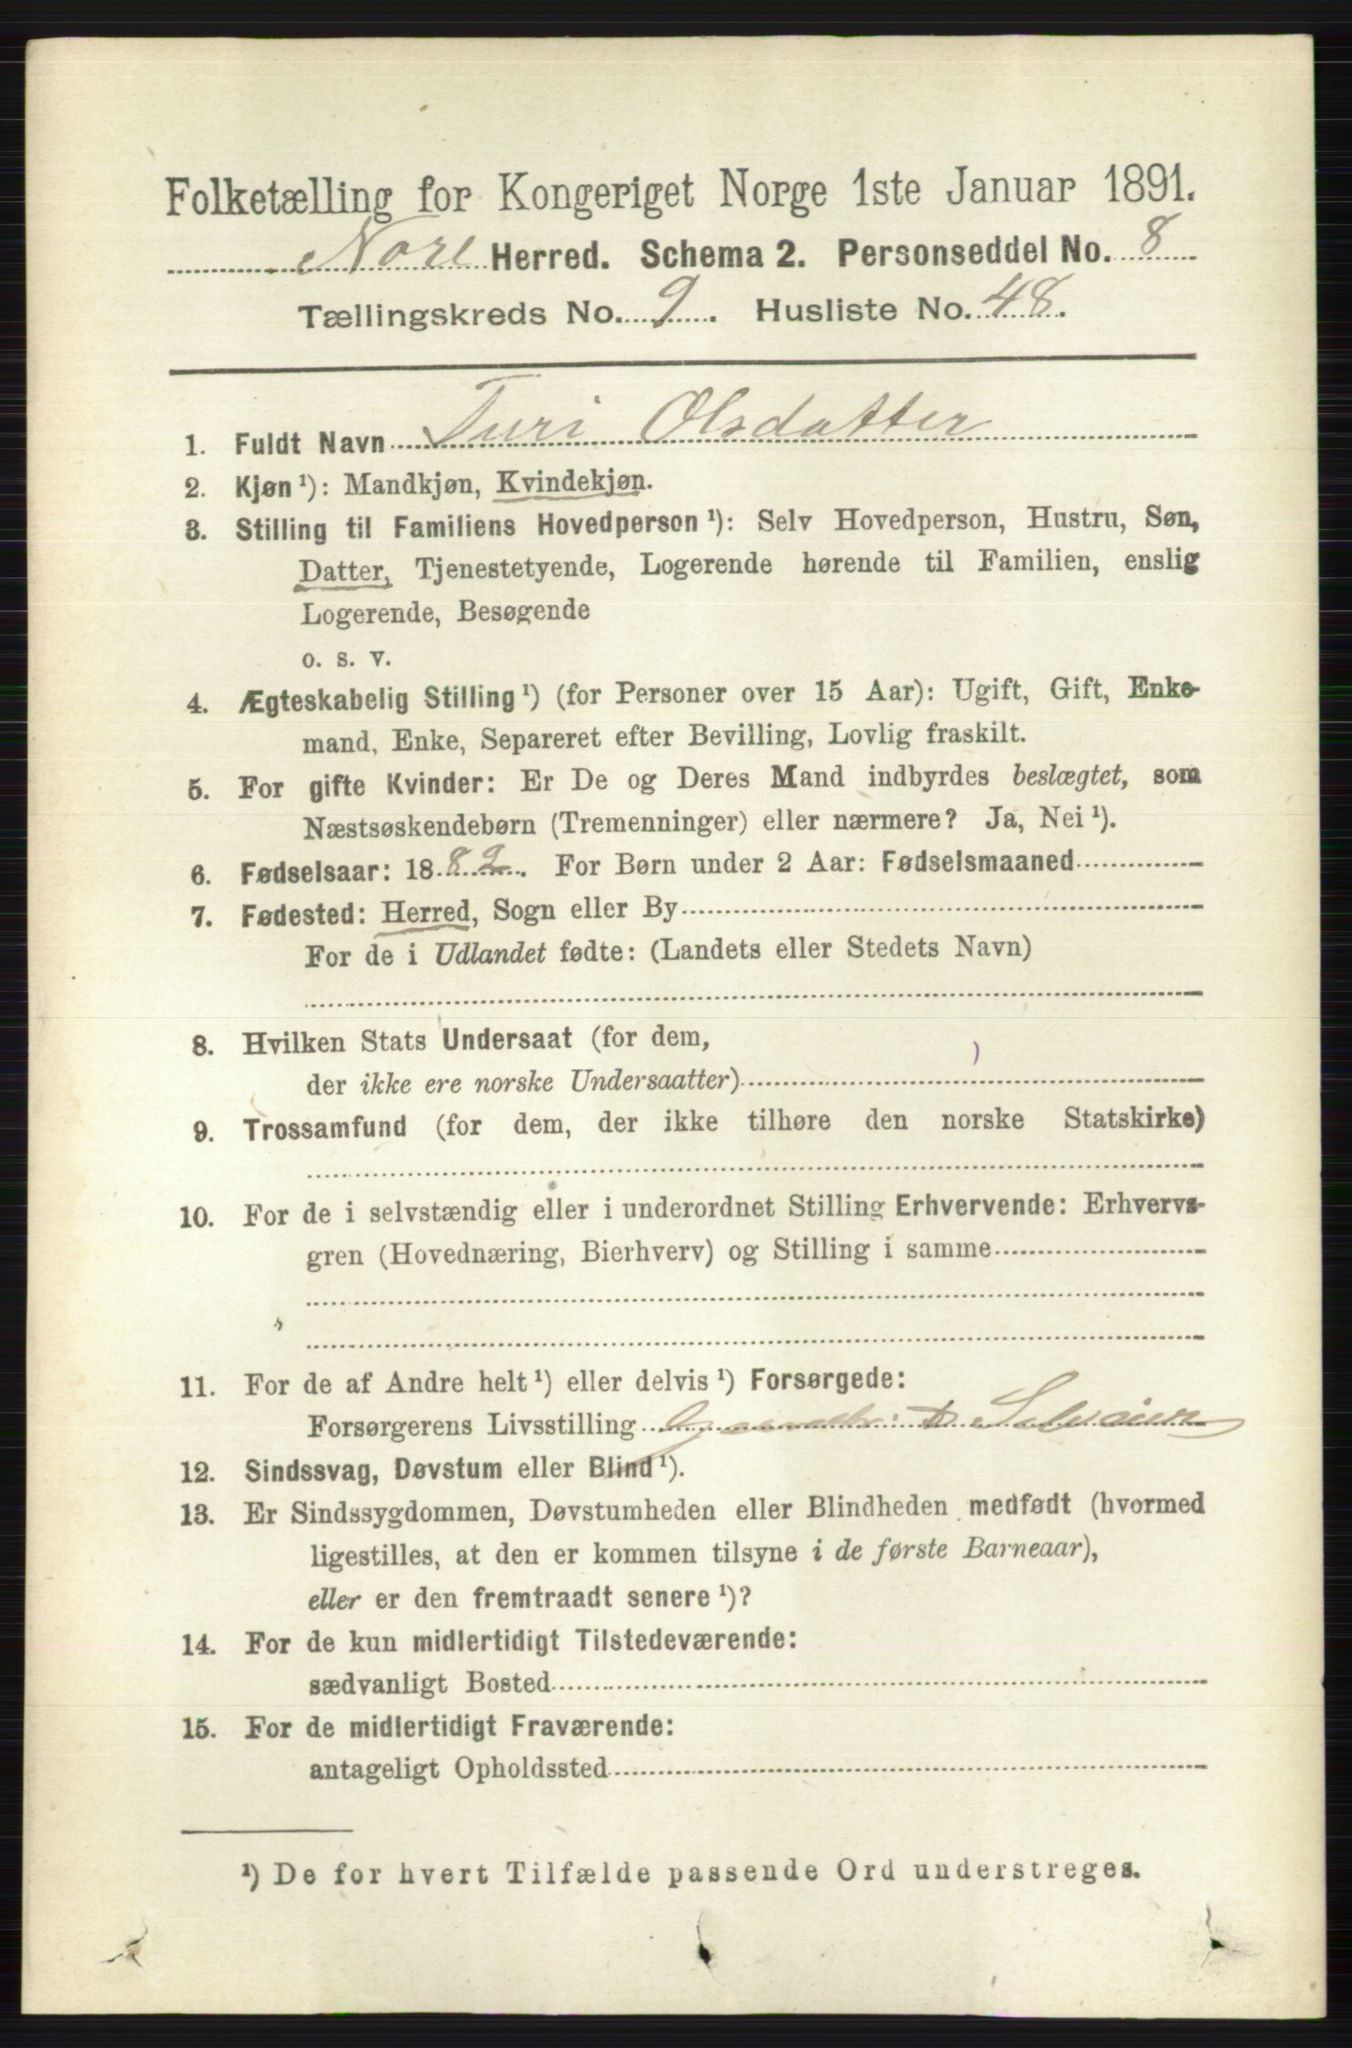 Folketælling for Kongeriget Norge 1ste Januar 1891.
Nore Herred. Schema 2. Personseddel No. 8
Tællingskreds No. 9. Husliste No. 48.
1. Fuldt Navn Turi Olsdatter
2. Kjøn ¹): Mandkjøn, Kvindekjøn.
3. Stilling til Familiens Hovedperson ¹): Selv Hovedperson, Hustru, Søn,
Datter, Tjenestetyende, Logerende hørende til Familien, enslig
Logerende, Besøgende
o. s. v.
4. Ægteskabelig Stilling ¹) (for Personer over 15 Aar): Ugift, Gift, Enke-
mand, Enke, Separeret efter Bevilling, Lovlig fraskilt.
5. For gifte Kvinder: Er De og Deres Mand indbyrdes beslægtet, som
Næstsøskendebørn (Tremenninger) eller nærmere? Ja, Nei ¹).
6. Fødselsaar: 1882. For Børn under 2 Aar: Fødselsmaaned
7. Fødested: Herred, Sogn eller By
For de i Udlandet fødte: (Landets eller Stedets Navn)
8. Hvilken Stats Undersaat (for dem,
der ikke ere norske Undersaatter)
9. Trossamfund (for dem, der ikke tilhøre den norske Statskirke)
10. For de i selvstændig eller i underordnet Stilling Erhvervende: Erhvervs-
gren (Hovednæring, Bierhverv) og Stilling i samme
11. For de af Andre helt ¹) eller delvis ¹) Forsørgede:
Forsørgerens Livsstilling Gaardbr. &
12. Sindssvag, Døvstum eller Blind ¹).
13. Er Sindssygdommen, Døvstumheden eller Blindheden medfødt (hvormed
ligestilles, at den er kommen tilsyne i de første Barneaar),
eller er den fremtraadt senere ¹)?
14. For de kun midlertidigt Tilstedeværende:
sædvanligt Bosted
15. For de midlertidigt Fraværende:
antageligt Opholdssted
¹) De for hvert Tilfælde passende Ord understreges.